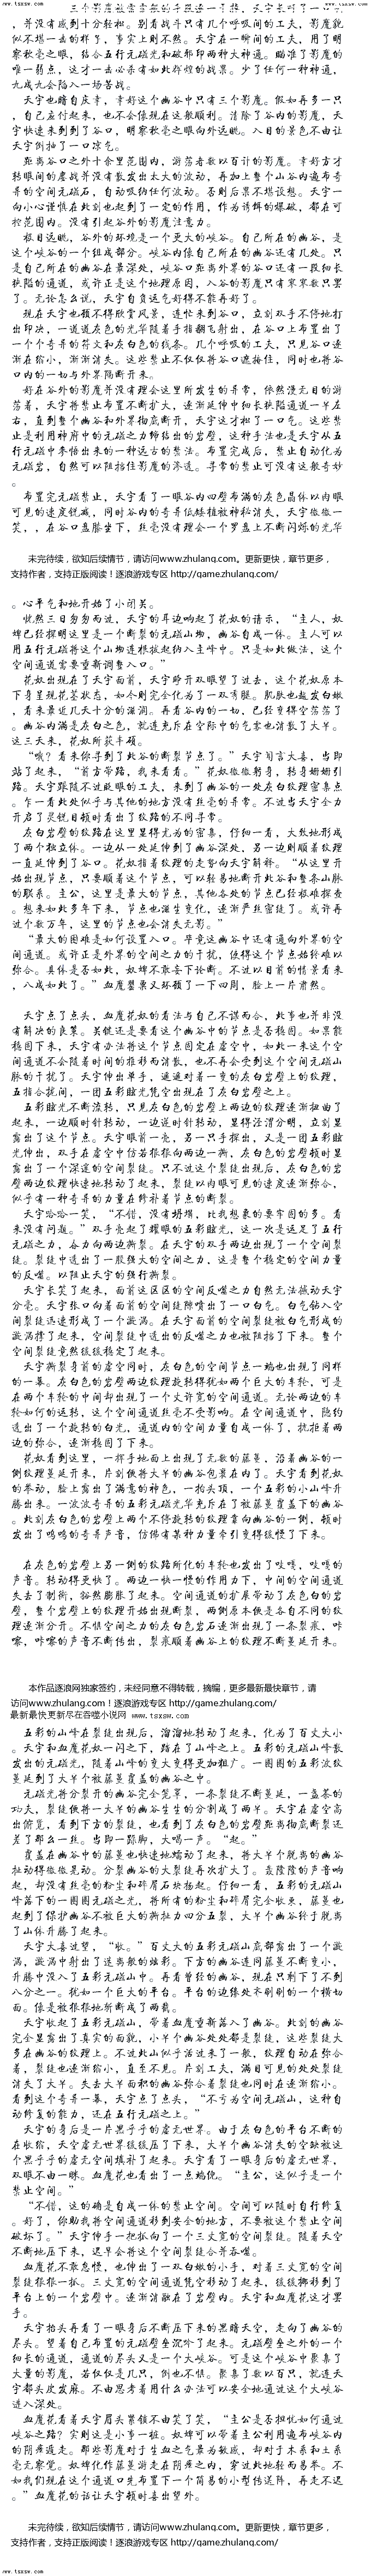 www.tsxsw.com
www.tsxsw.com
，并没有感到十分轻松。别看战斗只有几个呼吸间的工夫，影魔貌
似不堪一击的样子，事实上则不然。天宇在一瞬间的工夫，用了明
唯一弱点，这才一击必杀有如此辉煌的战果。少了任何一种神通，
九成九会陷入一场苦战。
天宇也暗自庆幸，幸好这个幽谷中只有三个影魔。假如再多一只
，自己应付起来，也不会像现在这般顺利。清除了谷内的影魔，天宇
快速来到到了谷口，明察秋毫之眼向外远眺。入目的景色不由让
天宇倒抽了一口凉气。
距离谷口之外十余里范围内，游荡者数以百计的影魔。幸好方才
转眼间的鏖战并没有散发出太大的波动，再加上整个山谷内遍布奇
异的空间元磁石，自动吸纳任何波动。否则后果不堪设想。天宇一
向小心谨慎在此刻也起到了一定的作用，作为诱饵的爆破，都在可
控范围内。没有引起谷外的影魔注意力。
极目远眺，谷外的环境是一个更大的峡谷。自己所在的幽谷，是
这个峡谷的一个组成部分。峡谷内像自己所在的幽谷还有几处。只
是自己所在的幽谷在最深处，峡谷口距离外界的谷口还有一段细长
狭隘的通道，或许正是这个地理原因，入谷的影魔只有寥寥数只罢
了。无论怎么说，天宇自责运气好得不能再好了。
现在天宇也顾不得欣赏风景，连忙来到谷口，立刻双手不停地打
出印决，一道道灰色的光华随着手指翻飞射出，在谷口上布置出了
一个个奇异的符文和灰白色的线条。几个呼吸的工夫，只见谷口逐
渐在缩小，渐渐消失。这些禁止不仅仅将谷口遮掩住，同时也将谷
口内的一切与外界隔断开来。
好在谷外的影魔并没有理会这里所发生的异常，依然漫无目的游
荡着，天宇将禁止布置不断扩大，逐渐延伸中细长狭隘通道一半左
右，直到整个幽谷和外界彻底断开，天宇这才松了一口气。这些禁
止是利用神府中的元磁之力缔结出的岩壁，这种手法也是天宇从五
行元磁中参悟出来的一种远古的禁法。布置完成后，禁止自动化为
元磁岩，自然可以阻挡住影魔的渗透。寻常的禁止可没有这般奇妙
。
布置完元磁禁止，天宇看了一眼谷内四壁布满的灰色晶体以肉眼
可见的速度锐减，同时谷内的奇异低矮植被神秘消失，天宇微微一
笑，，在谷口盘膝坐下，丝毫没有理会一个罗盘上不断闪烁的光华
未完待续，欲知后续情节，请访问www.zhulang.com。更新更快，章节更多，
支持作者，支持正版阅读！逐浪游戏专区 http://game.zhulang.com/
。心平气和地开始了小闭关。
恍然三日匆匆而过，天宇的耳边响起了花奴的请示，“主人，奴
婢已经探明这里是一个断裂的元磁山坳，幽谷自成一体。主人可以
用五行元磁将这个山坳连根拔起纳入主峰中。只是如此做法，这个
空间通道需要重新调整入口。”
花奴出现在了天宇面前，天宇睁开双眼望了过去，这个花奴原本
下身呈现花茎状态，如今则完全化为了一双秀腿。肌肤也越发白嫩
，看来最近几天十分的滋润。再看谷内的一切，已经变得空荡荡了
。幽谷内满是灰白之色，就连充斥在空际中的气雾也消散了大半。
这三天来，花奴所获丰硕。
“哦？看来你寻到了此谷的断裂节点了。”天宇闻言大喜，当即
站了起来，“前方带路，我来看看。”花奴微微躬身，转身姗姗引
路。天宇跟随不过眨眼的工夫，来到了幽谷的一处灰白纹理密集点
。乍一看此处似乎与其他的地方没有丝毫的异常。不过当天宇全力
开启了灵锐目顿时看出了纹路的不同寻常。
灰白岩壁的纹路在这里显得尤为的密集，仔细一看，大致地形成
了两个独立体。一边从一处延伸到了幽谷深处，另一边则顺着纹理
一直延伸到了谷口。花奴指着纹理的走势向天宇解释。“从这里开
始出现节点，只要顺着这个节点，可以轻易地断开此谷和整条山脉
的联系。主公，这里是最大的节点，其他各处的节点已经极难探查
。想来如此多年下来，节点也滋生变化，逐渐严丝密缝了。或许再
过个数万年，这里的节点也会消失无影。”
“最大的困难是如何设置入口。毕竟这幽谷中还有通向外界的空
间通道。或许正是外界的空间之力的干扰，使得这个节点始终难以
弥合。具体是否如此，奴婢不敢妄下论断。不过以目前的情景看来
，八成如此了。”血魔罂粟又环顾了一下四周，脸上一片肃然。
天宇点了点头，血魔花奴的看法与自己不谋而合，此事也并非没
有解决的良策。关键还是要看这个幽谷中的节点是否稳固。如果能
稳固下来，天宇有办法将这个节点固定在虚空中，如此一来这个空
间通道不会随着时间的推移而消散，也不再会受到这个空间元磁山
脉的干扰了。天宇伸出单手，遥遥对着一变的灰白岩壁上的纹理，
五指合拢间，一团五彩眩光凭空出现在了灰白岩壁之上。
五彩眩光不断流转，只见灰白色的岩壁上两边的纹理逐渐扭曲了
起来，一边顺时针转动，一边逆时针转动，显得泾渭分明，立刻显
露出了这个节点。天宇眼前一亮，另一只手探出，又是一团五彩眩
光伸出，双手在虚空中仿若狠狠向两边一撕，灰白色的岩壁顿时显
露出了一个深邃的空间裂缝。只不过这个裂缝出现后，灰白色的岩
壁两边纹理快速地转动了起来，裂缝以肉眼可见的速度逐渐弥合，
似乎有一种奇异的力量在修补着节点的断裂。
天宇哈哈一笑，“不错，没有坍塌，比我想象的要牢固的多。看
来没有问题。”双手亮起了耀眼的五彩眩光，这一次是运足了五行
元磁之力，各力向两边撕裂。在天宇的双手两边出现了一个空间裂
缝。裂缝中透出了一股强大的空间之力，这是整个稳定的空间力量
的反噬。以阻止天宇的强行撕裂。
天宇长笑了起来，面前这区区的空间反噬之力自然无法撼动天宇
分毫。天宇张口向着面前的空间缝隙喷出了一口白气。白气钻入空
间裂缝迅速形成了一个漩涡。在天宇面前的空间裂缝被白气形成的
漩涡撑了起来，空间裂缝中透出的反噬之力也被阻挡了下来。整个
空间裂缝竟然缓缓稳定了起来。
天宇撕裂身前的虚空同时，灰白色的空间节点一端也出现了同样
的一幕。灰白色的岩壁两边纹理旋转得犹如两个巨大的车轮，可是
在两个车轮的中间却出现了一个丈许宽的空间通道。无论两边的车
轮如何的运转，这个空间通道丝毫不受影响。在空间通道中，隐约
透出了一个旋转的白光，通道内的空间力量自成一体了，抗拒着两
边的弥合，逐渐稳固了下来。
花奴看到这里，一挥手地面上出现了无数的藤蔓，沿着幽谷的一
侧纹理蔓延开来，片刻便将大半的幽谷包裹在内了。天宇看到花奴
的举动，脸上露出了满意的神色，一拍头顶，一个五彩的小山峰升
腾出来。一波波奇异的五彩元磁光华充斥在了被藤蔓覆盖下的幽谷
。此刻灰白色的岩壁上两个不停旋转的纹理靠向幽谷的一侧，顿时
发出了呜呜的奇异声音，仿佛有某种力量牵引变得缓慢了下来。
在灰色的岩壁上另一侧的纹路所化的车轮也发出了吱嘎，吱嘎的
声音。转动得更快了。两边一快一慢的作用力下，中间的空间通道
失去了制衡，豁然膨胀了起来。空间通道的扩展带动了灰白色的岩
壁，整个岩壁上的纹理开始出现断裂，两侧原本便是各自不同的纹
理逐渐分开。不惧空间之力的灰白岩石逐渐出现了一条裂痕，咔
嚓，咔嚓的声音不断传出，裂痕顺着幽谷上的纹理不断蔓延开来。
本作品逐浪网独家签约，未经同意不得转载，摘编，更多最新最快章节，请
访问www.zhulang.com！逐浪游戏专区 http://game.zhulang.com/
最新最快更新尽在吞噬小说网 www.tsxsw.com
五彩的山峰在裂缝出现后，溜溜地转动了起来，化为了百丈大小
。天宇和血魔花奴一闪之下，踏在了山峰之上。五彩的元磁山峰散
发出的元磁光，随着山峰的变大变得更加粗广。一圈圈的五彩波纹
蔓延到了大半个被藤蔓覆盖的幽谷之中。
元磁光将分裂开的幽谷完全笼罩，一条裂缝不断蔓延，一盏茶的
功夫，裂缝便将一大半的幽谷生生的分割成了两半。天宇在虚空高
出俯览，看到下方的裂缝，也看到了灰白色的岩壁距离彻底断裂还
差了那么一丝。当即一跺脚，大喝一声。“起。”
覆盖在幽谷中的藤蔓也快速地蠕动了起来，将大半个脱离的幽谷
拉动得微微晃动。分裂幽谷的大裂缝再次扩大了。轰隆隆的声音响
起，却没有丝毫的粉尘和碎屑石块扬起。仔细一看，五彩的元磁山
峰落下的一圈圈元磁光，将所有的粉尘和碎屑完全收束，藤蔓也
起到了保护幽谷不被巨大的撕扯力四分五裂，大半个幽谷终于脱离
了山体升腾了起来。
天宇大喜过望，“收。”百丈大的五彩元磁山底部露出了一个漩
涡，漩涡中射出了迷离般的炫彩。下方的幽谷连同藤蔓不断变小，
升腾中没入了五彩元磁山中。再看曾经的幽谷，现在只剩下了不到
八分之一。犹如一个巨大的平台。平台的边缘处齐刷刷的一个横切
面。像是被狠狠地斩断成了两截。
天宇收起了五彩元磁山，带着血魔重新落入了幽谷。此刻的幽谷
完全显露出了真实的面貌，小半个幽谷处处都是裂缝，这些裂缝大
多在幽谷的纹理上。不过此山似乎活过来了一般，纹理自动在弥合
着，裂缝也逐渐缩小，直至不见。片刻工夫，满目可见的处处裂缝
消失了大半。失去大半面积的幽谷弥合着裂缝也同时在逐渐缩小。
看到这个奇异一幕，天宇点了点头，“不亏为空间元磁山，这种自
动修复的能力，还在五行元磁之上。”
天宇的身后是一片黑乎乎的虚无世界。由于灰白色的平台不断的
在收缩，天空虚无世界缓缓压了下来，大半个幽谷消失的空缺被这
个黑乎乎的虚无空间填补了起来。天宇看了一眼身后的虚无世界，
双眼不由一眯。血魔花也看出了一点端倪。“主公，这似乎是一个
禁止空间。”
“不错，这的确是自成一体的禁止空间。空间可以随时自行修复
。好了，你助我将空间通道移到安全的地方，不要被这个禁止空间
破坏了。”天宇伸手一把抓向了一个三丈宽的空间裂缝。随着天空
不断地压下来，迟早会将这个空间裂缝合并吞噬。
血魔花不敢怠慢，也伸出了一双白嫩的小手，对着三丈宽的空间
裂缝狠狠一抓。三丈宽的空间通道凭空移动了起来，缓缓挪移到了
平台上的一个岩壁中。逐渐消融在了岩壁内。天宇和血魔花这才罢
手。
天宇抬头再看了一眼身后不断压下来的黑暗天空，走向了幽谷的
尽头。望着自己布置的元磁壁垒沉吟了起来。元磁壁垒之外的一个
细长的通道，通道的尽头又是一个大峡谷。可是这个峡谷中聚集了
大量的影魔，若仅仅是几只，倒也不惧。聚集了数以百只，就连天
宇都头皮发麻。不由思考着用什么办法可以安全地通过这个大峡谷
进入深处。
血魔花看着天宇眉头紧锁不由笑了笑，“主公是否担忧如何通过
峡谷之路？实则这是小事一桩。奴婢可以带着主公利用遍布峡谷内
的阴煞遁走。那些影魔对于生血之气最为敏感，却对于木系和土系
毫无察觉。奴婢化作藤蔓游走在阴煞之内，穿过此地轻而易举。不
如我们现在这个通道口先布置下一个简易的小型传送阵，再走不迟
。”血魔花的话让天宇顿时喜出望外。
未完待续，欲知后续情节，请访问www.zhulang.com。更新更快，章节更多，
支持作者，支持正版阅读！逐浪游戏专区 http://game.zhulang.com/
www.tsxsw.com